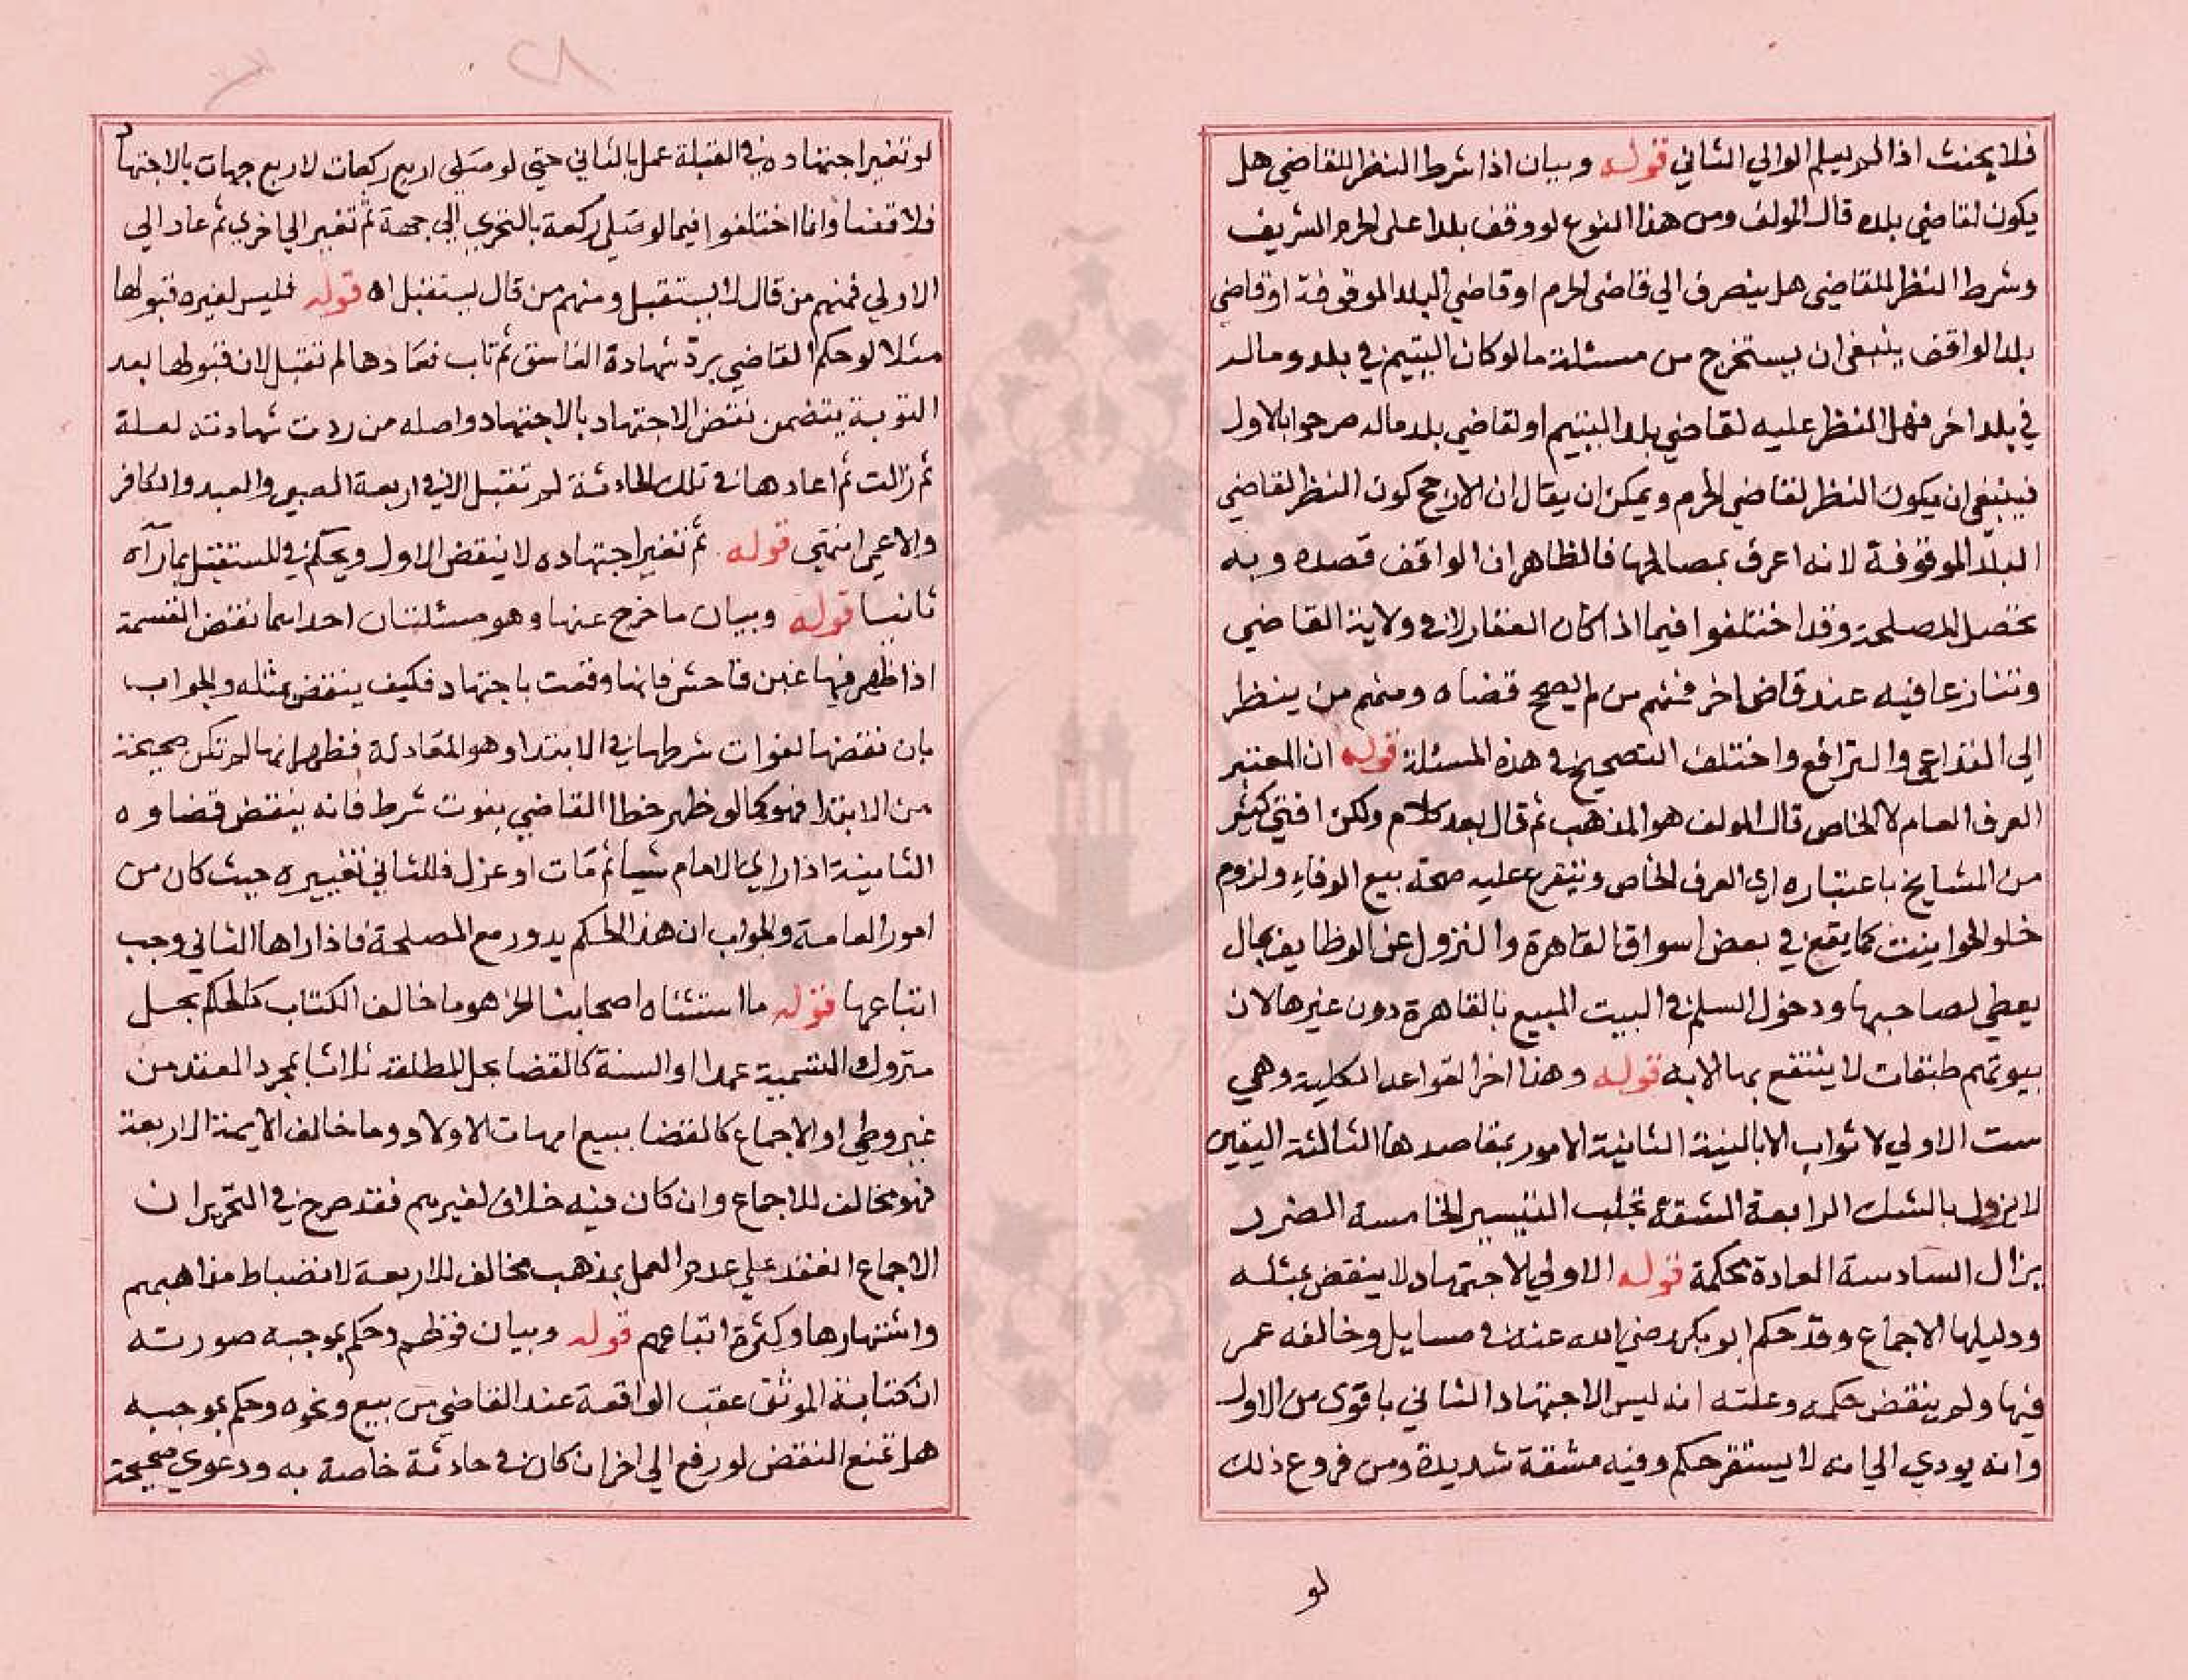 فلا يحنث اذا لم يعلم الوالي الثاني قوله وبيان اذا شرط النظر للقاضي هل
يكون لقاضي بلده قال المولف ومن هذا النوع لو وقف بلدا على الحرم الشريف
وشرط النظر للقاضي هل ينصرف الي قاضي الحرم او قاضي البلد الموقوفة او قاضي
بلد الواقف ينبغي ان يستخرج من مسئلة ما لو كان اليتيم في بلد وماله
في بلد اخر فهل النظر عليه لقاضي بلد اليتيم او لقاضي بلد ماله صرحوا بالاول
فينبغي ان يكون النظر لقاضي الحرم ويمكن ان يقال ان الارجح كون النظر لقاضي
البلد الموقوفة لانه اعرف بمصالحها فالظاهر ان الواقف قصده وبه
تحصل المصلحة وقد اختلفوا فيما اذا كان العقار لا في ولاية القاضي
وتنازعا فيه عند قاضي اخر فمنهم من لم يصحح قضاه ومنهم من ينظر
الي التداعي والترافع واختلف التصحيح في هذه المسئلة قوله ان المعتبر
العرف العام لا الخاص قال المولف هو المذهب ثم قال بعد كلام ولكن افتي كثير
من المشايخ باعتباره اي العرف الخاص ويتفرع عليه صحة بيع الوفاء ولزوم
خلو الحوانيت كما يقع في بعض اسواق القاهرة والنزول عن الوظايف بمال
يعطي لصاحبها ودخول السلم في البيت المبيع بالقاهرة دون غيرها لان
بيوتهم طبقات لا ينتفع بها الا به قوله وهذا اخر القواعد الكلية وهي
ست الاولي لا ثواب الا بالنية الثانية الامور بمقاصدها الثالثة اليقين
لا يزول بالشك الرابعة المشقة تجلب التيسير الخامسة الضرر
يزال السادسة العادة محكمة قوله الاولي الاجتهاد لا ينقض بمثله
ودليلها الاجماع وقد حكم ابو بكر رضي الله عنه في مسايل وخالفه عمر
فيها ولم ينقض حكمه وعلته انه ليس الاجتهاد الثاني باقوى من الاول
وانه يودي الي انه لا يستقر حكم وفيه مشقة شديدة ومن فروع ذلك
لو
لو تغير اجتهاده في القبلة عمل بالثاني حتي لو صلي اربع ركعات لاربع جهات بالاجتهاد
فلا قضا وانما اختلفوا فيما لو صلي ركعة بالتحري الي جهة ثم تغير الي اخري ثم عاد الي
الاولي فمنهم من قال لا يستقبل ومنهم من قال يستقبل اه قوله فليس لغيره قبولها
مثلا لو حكم القاضي برد شهادة الفاسق ثم تاب فعادها لم تقبل لان قبولها بعد
التوبة يتضمن نقض الاجتهاد بالاجتهاد واصله من ردت شهادته لعلة
ثم زالت ثم اعادها في تلك الحادثة لم تقبل الا في اربعة الصبي والعبد والكافر
والاعمي انتهي قوله ثم تغير اجتهاده لا ينقض الاول ويحكم في المستقبل بما رآه
ثانيا قوله وبيان ما خرج عنها وهو مسئلتان احداهما نقض القسمة
اذا ظهر فيها غبن فاحش فانها وقعت باجتهاد فكيف ينقض بمثله والجواب
بان نقضها لفوات شرطها في الابتدا وهو المعادلة فظهر انها لم تكن صحيحة
من الابتدا فهو كما لو ظهر خطا القاضي بفوت شرط فانه ينقض قضاوه
الثانية اذا راي الامام شيا ثم مات او عزل فللثاني تغييره حيث كان من
امور العامة والجواب ان هذا الحكم يدور مع المصلحة فاذا راها الثاني وجب
اتباعها قوله ما استثناه اصحابنا الخ هو ما خالف الكتاب كالحكم بحل
متروك التسمية عمدا او السنة كالقضا بحل المطلقة ثلاثا بمجرد العقد من
غير وطي او الاجماع كالقضا ببيع امهات الاولاد وما خالف الايمة الاربعة
فهو مخالف للاجماع وان كان فيه خلاف لغيرهم فقد صرح في التحرير ان
الاجماع انعقد علي عدم العمل بمذهب مخالف للاربعة لانضباط مذاهبهم
واشتهارها وكثرة اتباعهم قوله وبيان قولهم وحكم بموجبه صورته
ان كتابة الموثق عقب الواقعة عند القاضي من بيع ونحوه وحكم بموجبه
هل تمنع النقض لو رفع الي اخر ان كان في حادثة خاصة به ودعوي صحيحة